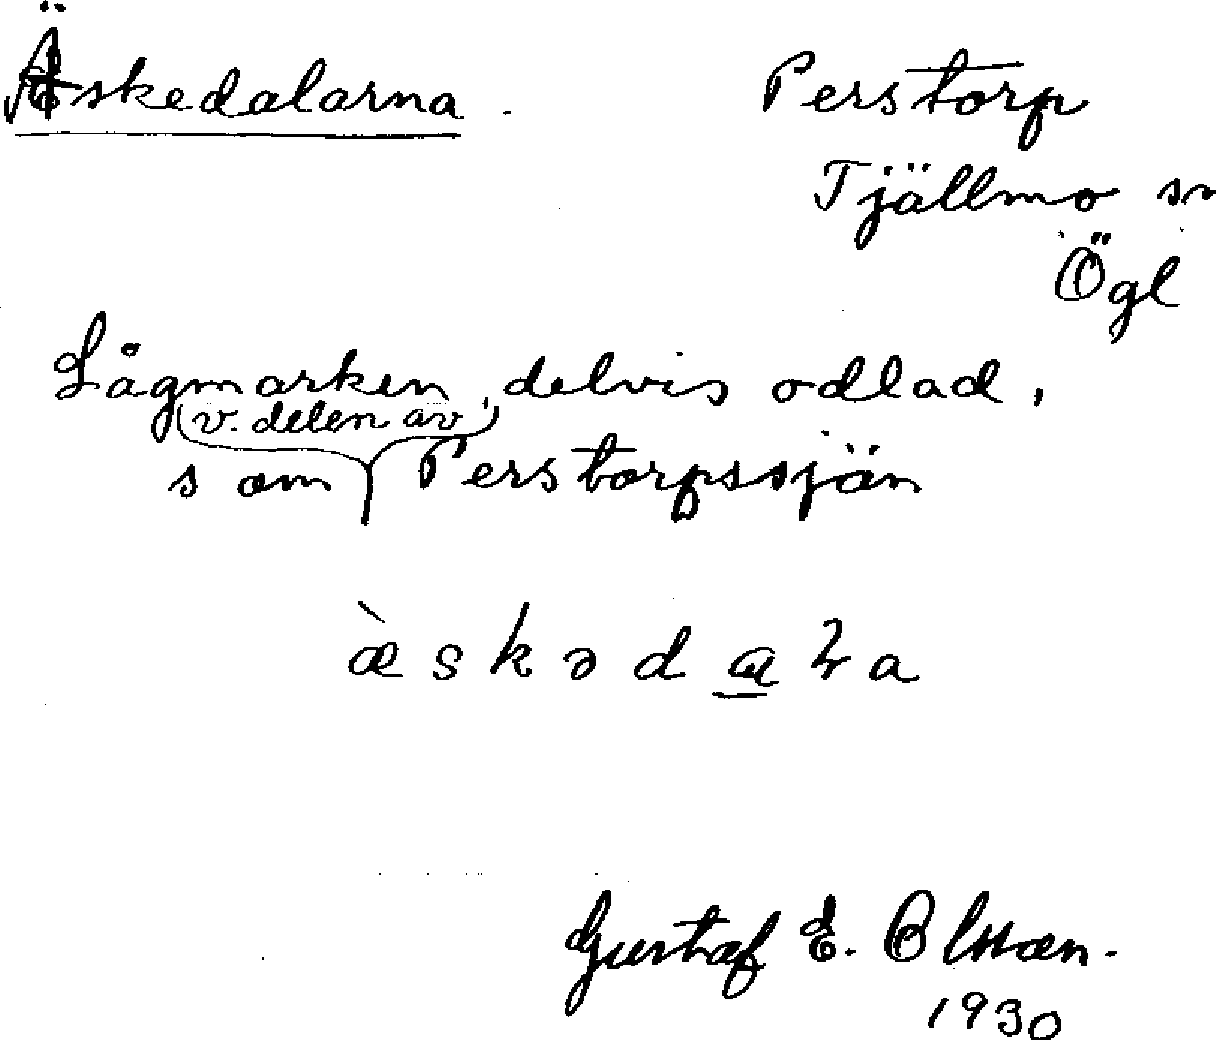 Äskedalarna.
Perstorp
Tjällmo sn
Ögl
Lågmarken, delvis odlad,
v. delen av
s om Perstorpssjön
æ̀skədaɽa
Gustaf E. Olsson.
1930